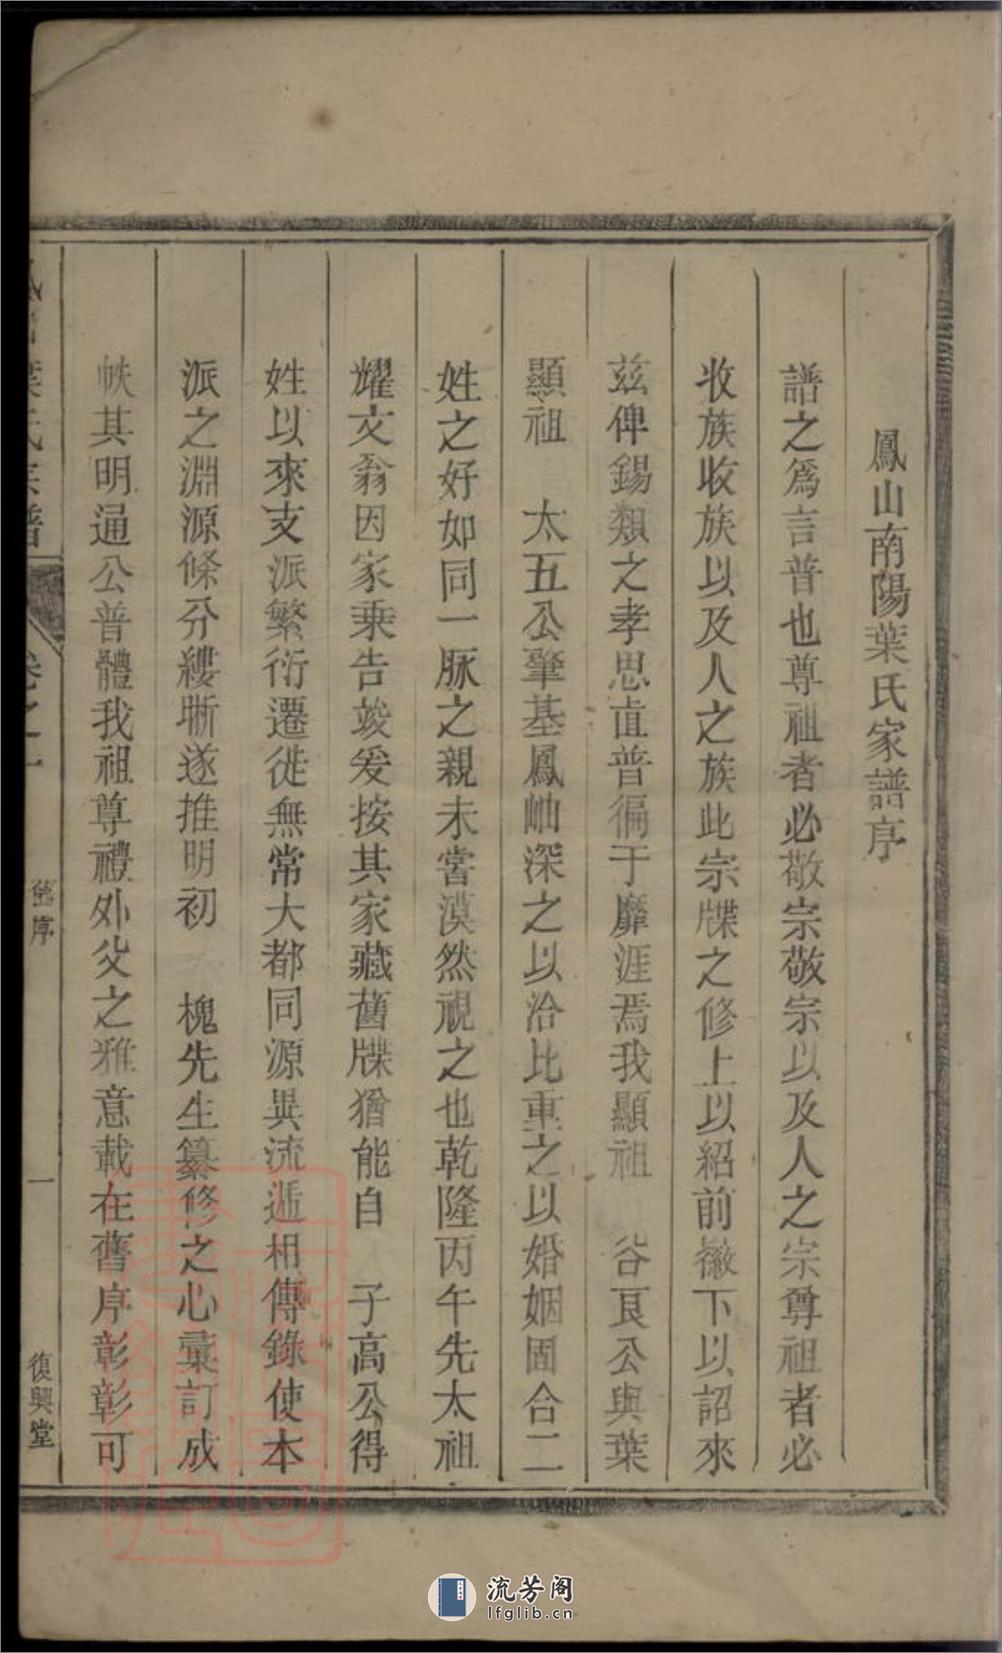 鳳山南陽葉氏家譜序
譜之爲言普也尊祖者必敬宗敬宗以及人之宗尊祖者必
收族收族以及人之族此宗牒之修上以紹前徽下以詔來
茲俾錫類之孝思直普徧于靡涯焉我顯祖 谷艮公與葉
顯祖 太五公肇基鳳岫深之以洽比重之以婚姻固合二
姓之好如同一脈之親未嘗漠然視之也乾隆丙午先太祖
耀文翁因家乗告竣爰按其家藏舊牒猶能自 子高公得
姓以來支派繁衍遷徙無常大都同源異流逓相傳錄使本
派之淵源條分縷晰遂推明初 槐先生纂修之心彙訂成
帙其明通公普體我祖尊禮外父之雅意載在舊序彰彰可
葉氏宗譜
卷之一
舊序
一
復興堂
流芳阁
lfglib.cn